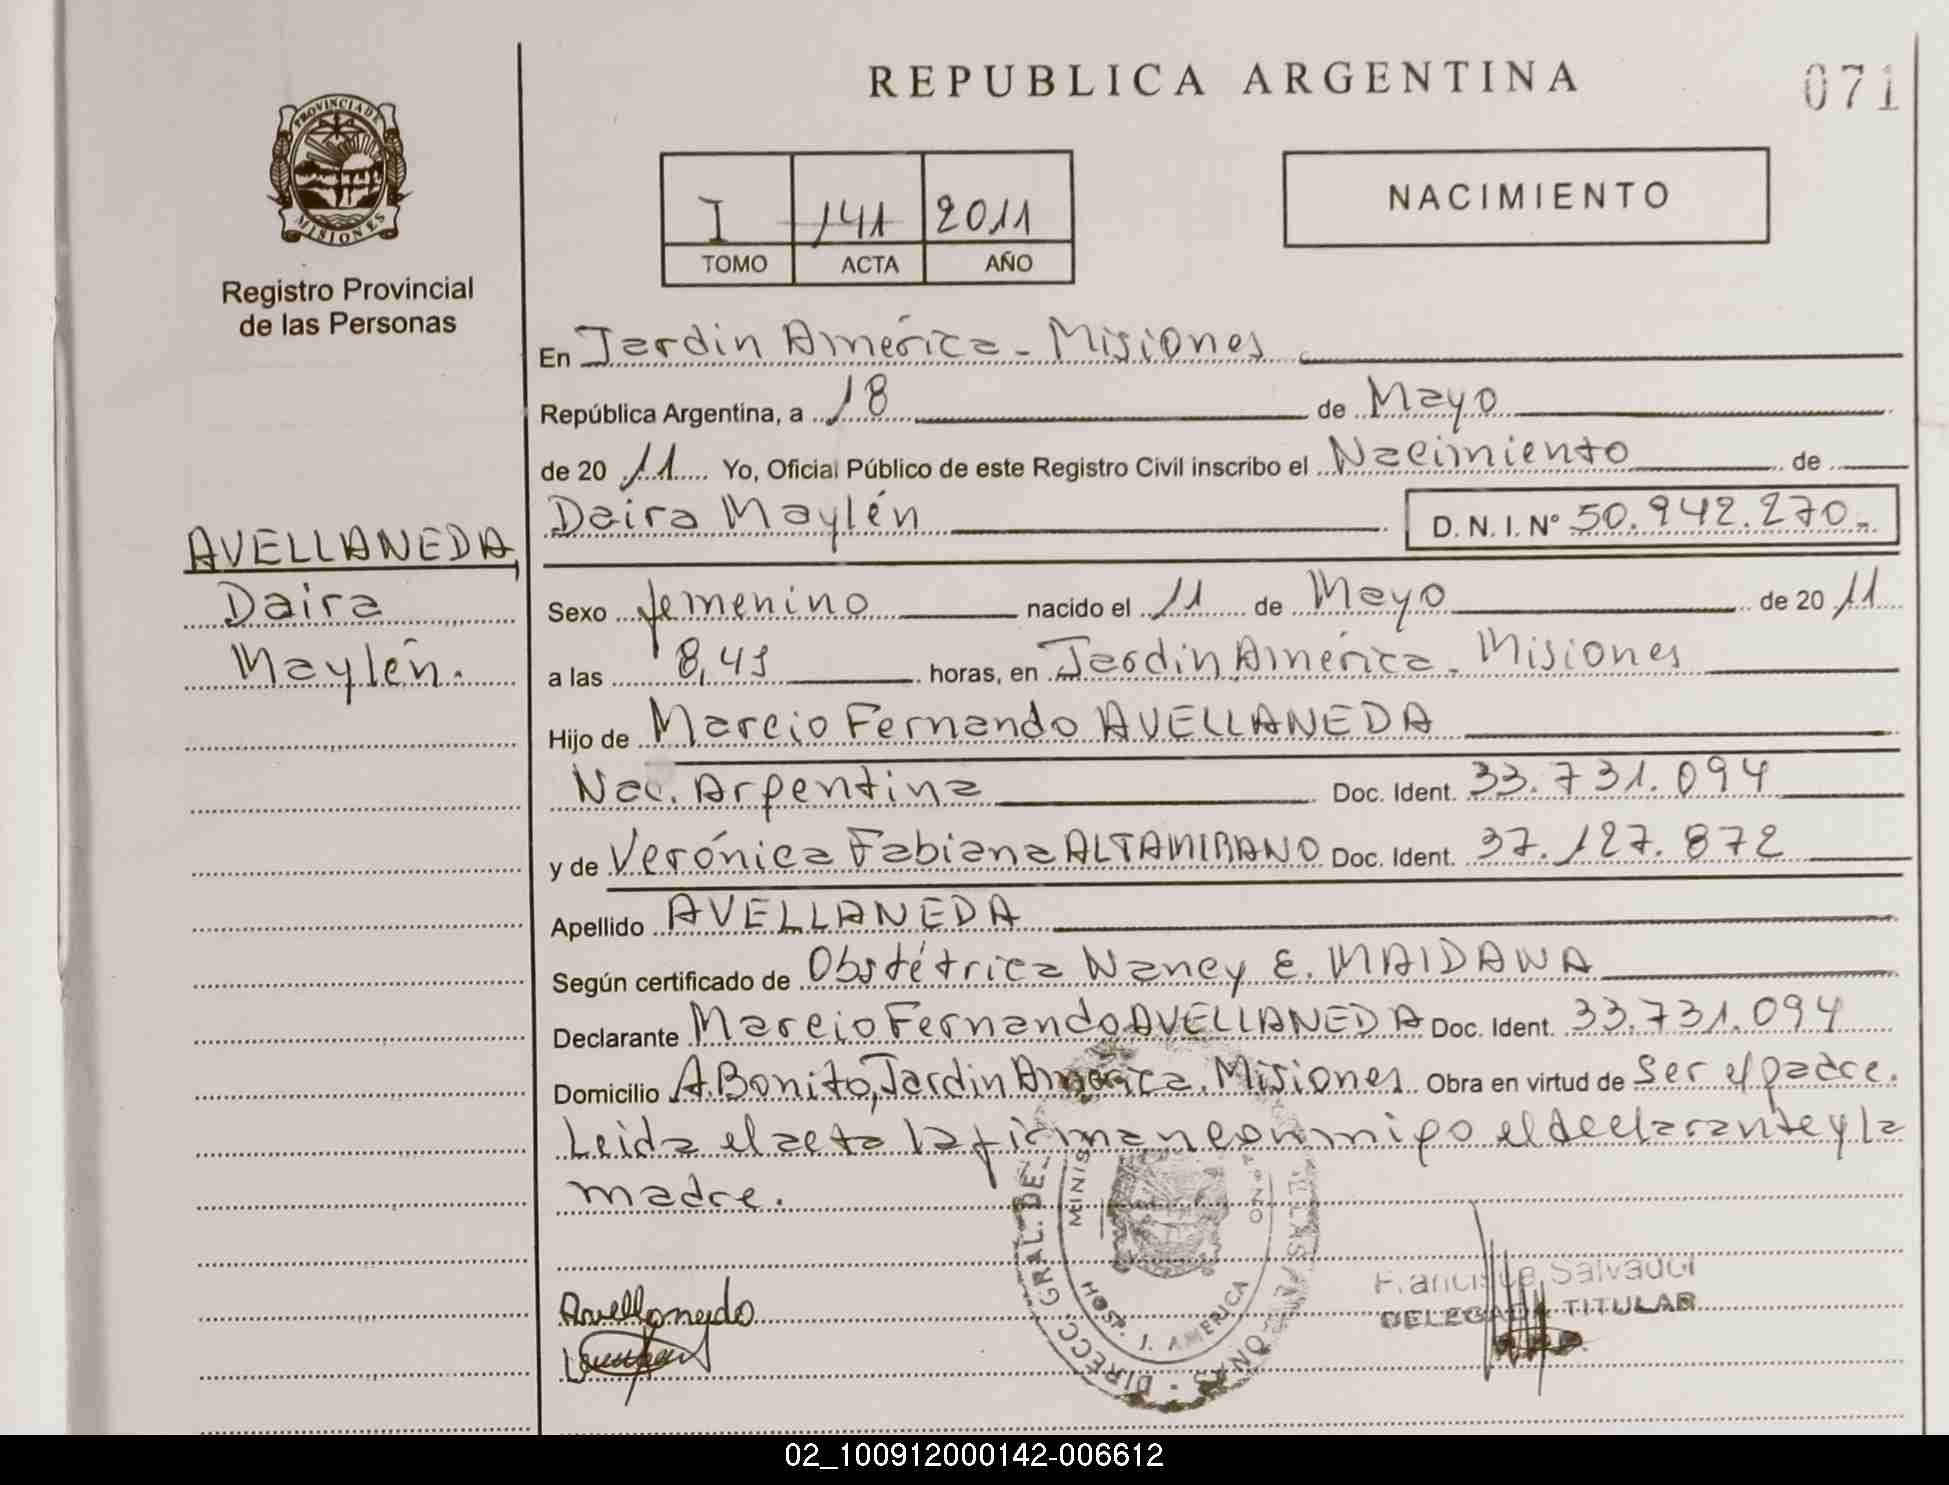 REPUBLICA ARGENTINA
071
PROVINCIA DE MISIONES
Registro Provincial
de las Personas
I 141 2011
TOMO ACTA AÑO
NACIMIENTO
En Jardín América - Misiones
República Argentina, a 18 de Mayo
de 20 11 Yo, Oficial Público de este Registro Civil inscribo el Nacimiento de
Daira Maylén D. N. I. N° 50.942.270.-
AVELLANEDA,
Daira
Maylén.
Sexo femenino nacido el 11 de Mayo de 20 11
a las 8,45 horas, en Jardín América - Misiones
Hijo de Marcio Fernando AVELLANEDA
Nac. Argentina Doc. Ident. 33.731.094
y de Verónica Fabiana ALTAMIRANO Doc. Ident. 37.127.872
Apellido AVELLANEDA
Según certificado de Obstétrica Nancy E. MAIDANA
Declarante Marcio Fernando AVELLANEDA Doc. Ident. 33.731.094
Domicilio A. Bonito, Jardín América. Misiones Obra en virtud de ser el padre.
Leida el acta la firman conmigo el declarante y la
madre.
Avellaneda
DIRECC. GRAL. DE
HOSP. J. AMERICA
Salvador
DELEGADA TITULAR
02_100912000142-006612